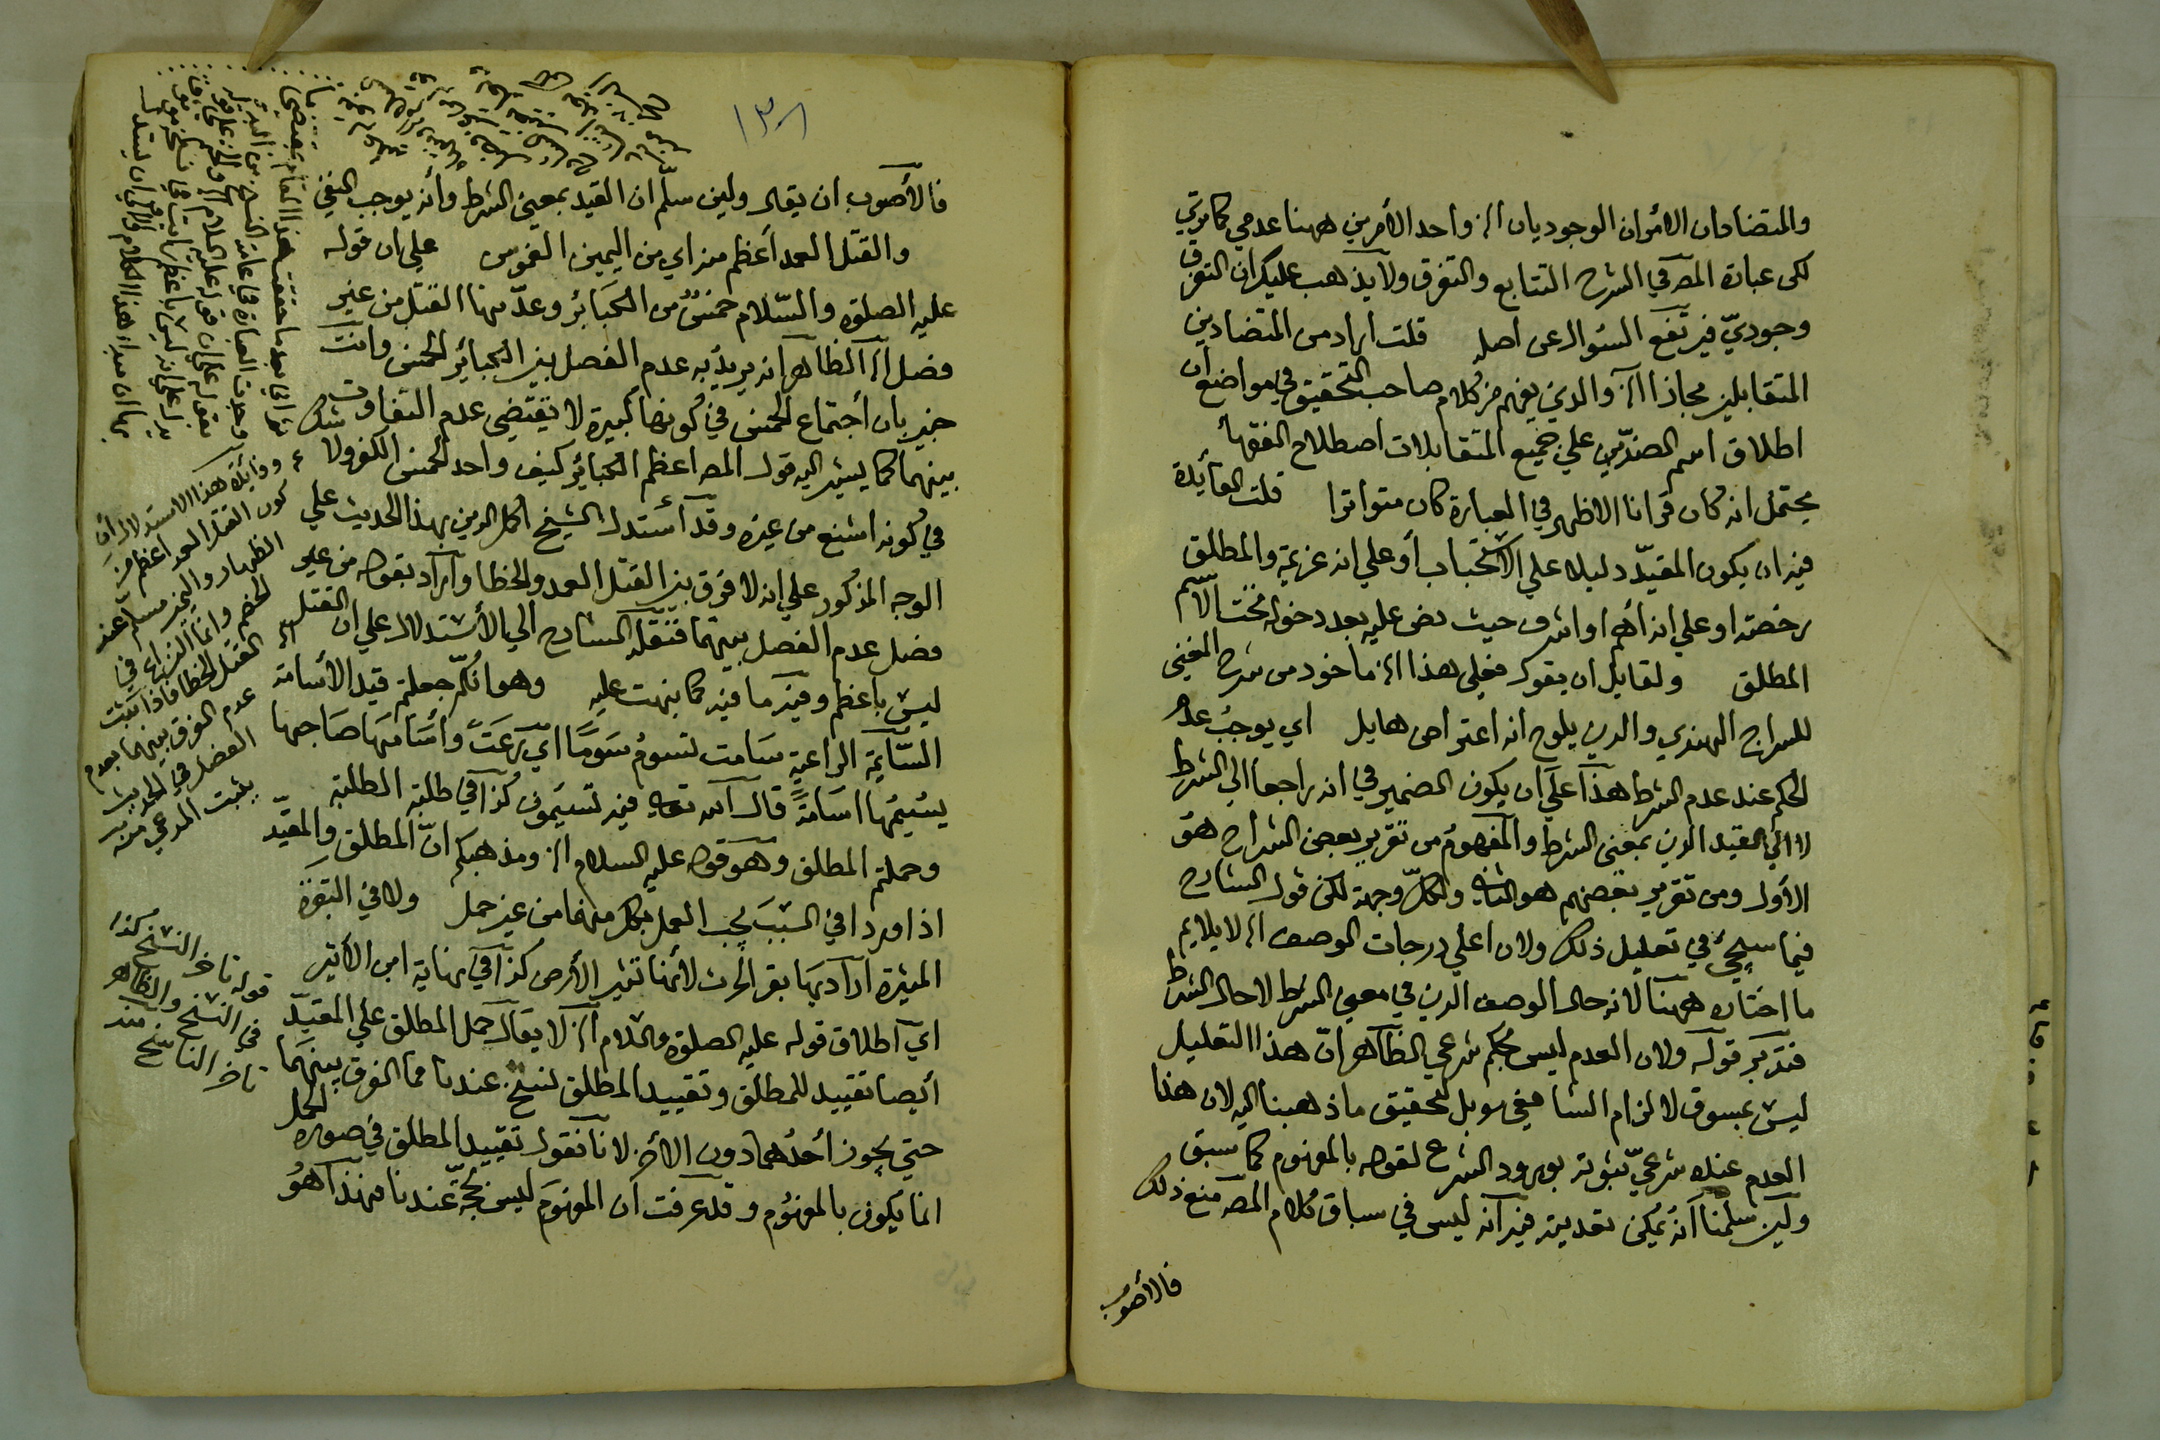 والمتضادان الامران الوجوديان الخ واحد الأمرين ههنا عدمي كما ترى
لكن عبارة المص في الشرح التتابع والتفرق ولا يذهب عليك ان التفرق
وجوديّ فيرتفع السّوال عن اصله قلت اراد من المتضادين
المتقابلين مجازا الخ والذي يفهم من كلام صاحب التحقيق في مواضع ان
اطلاق اسم الضدّين علي جميع المتقابلات اصطلاح الفقهاء
يحتمل انه كان قرانا الاظهر في العبارة كان متواترا قلت الفائدة
فيه ان يكون المقيّد دليلا علي الاستحباب أو علي انه عزيمة والمطلق
رخصة او علي انه أهم او اشرف حيث نص عليه بعد دخوله تحت الاسم
المطلق ولقايل ان يقول فعلي هذا الخ ماخوذ من شرح المغني
للسراج الهندي والذي يلوح انه اعتراض هايل اي يوجب عدم
الحكم عند عدم الشرط هذا علي ان يكون الضمير في انه راجعا الي الشرط
لا الي القيد الذي بمعنى الشرط والمفهوم من تقرير بعض الشراح هو
الأول ومن تقرير بعضهم هو الثاني ولكلّ وجهة لكن قول الشارح
فيما سيجيء في تعليل ذلك ولان اعلي درجات الوصف الخ لا يلايم
ما اختاره ههنا لانه حال الوصف الذي في معنى الشرط لا حال الشرط
فتدبر قوله ولان العدم ليس بحكم شرعي الظاهر انّ هذا التعليل
ليس بمسوق لالزام الشافعي بل لتحقيق ما ذهبنا اليه لان هذا
العدم عنده شرعيّ ثبوته بورود الشرع لقوله بالمفهوم كما سبق
ولين سلمنا انه يمكن تعديته فيه انه ليس في سباق كلام المص منع ذلك
فالأصوب
١٣٨
فالأصوب ان يقال ولين سلّم ان القيد بمعنى الشرط وأنه يوجب النفي
والقتل العمد أعظم منه اي من اليمين الغموس علي ان قوله
عليه الصلوة والسّلام خمسٌ من الكبائر وعدّ منها القتل من غير
فصل الخ الظاهر انه يريد به عدم الفصل بين الكبائر الخمس وانت
خبير بان اجتماع الخمس في كونها كبيرة لا يقتضي عدم التفاوت
بينهما كما يشير اليه قول المص اعظم الكبائر كيف واحد الخمس الكفر ولا شك
في كونه اشنع من غيره وقد أستدل الشيخ اكمل الدين بهذا الحديث علي
الوجه المذكور علي انه لا فرق بين القتل العمد والخطا واراد بقوله من غير
فصل عدم الفصل بينهما فنقله الشارح الي الأستدلال علي ان القتل
ليس باعظم وفيه ما فيه كما نبهت عليه وهو انكم جعلتم قيد الأسامة
السّايمة الراعية سَامت تسومُ سَومًا ايّ رعَت وأسَامَها صَاحبها
يسُيمُها اسَامَةً قال الله تعالي فيه تسيمون كذا في طلبة الطلبة
وحملتم المطلق وهو قوله عليه السلام الخ ومذهبكم انّ المطلق والمقيّد
اذا وردا في السّبب يجب العمل بكل منهما من غير حمل ولا في البقرة
المثيرة أراد بها بقر الحرث لأنها تثير الأرض كذا في نهاية ابن الأثير
اي اطلاق قوله عليه الصلوة والسلام الخ لا يقال حمل المطلق علي المقيّد
أيضا تقييد للمطلق وتقييد المطلق نسخ عندنا فما الفرق بينهما
حتي يجوز أحدُهما دون الأخر لانا نقول تقييد المطلق في صورة الحمل
انما يكون بالمفهُوم وقد عرفت ان المفهوم ليس بحجّة عندنا فهذا هُو
ووفايدة هذا الاستدلال ان
كون القتل العمد اعظم من
الظهار واليمين مسلم عند
الخصم وانما النزاع في
القتل الخطا فاذا ثبت
عدم الفرق بينهما بعدم
الفصل في الحديث
يثبت المدعي منه
قوله تاخر النسخ كذا
في النسخ والظاهر
تاخر الناسخ منه